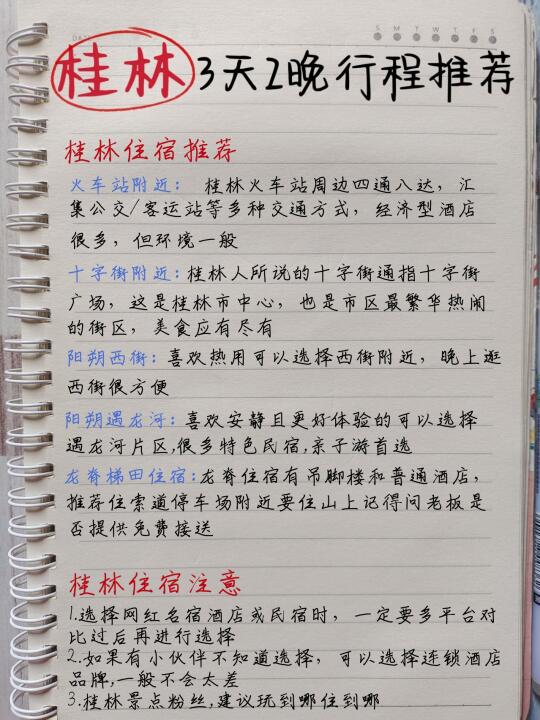 S M T W T F S
桂林3天2晚行程推荐
桂林住宿推荐
火车站附近： 桂林火车站周边四通八达，汇
集公交/客运站等多种交通方式，经济型酒店
很多，但环境一般
十字街附近:桂林人所说的十字街通指十字街
广场，这是桂林市中心，也是市区最繁华热闹
的街区，美食应有尽有
阳朔西街:喜欢热用可以选择西街附近，晚上逛
西街很方便
阳朔遇龙河:喜欢安静且更好体验的可以选择
遇龙河片区,很多特色民宿,亲子游首选
龙脊梯田住宿:龙脊住宿有吊脚楼和普通酒店，
推荐住索道停车场附近要住山上记得问老板是
否提供免费接送
桂林住宿注意
1.选择网红名宿酒店或民宿时，一定要多平台对
比过后再进行选择
2.如果有小伙伴不知道选择，可以选择连锁酒店
品牌,一般不会太差
3.桂林景点粉丝,建议玩到哪住到哪